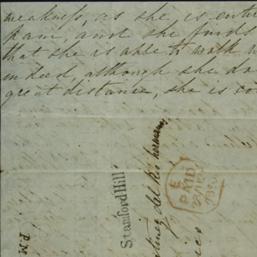 weakness, as she is entir
pain, and she finds
that she is able to walk w
indeed, although she do
great distance, she is co
Stamford Hill
PAID
P.M